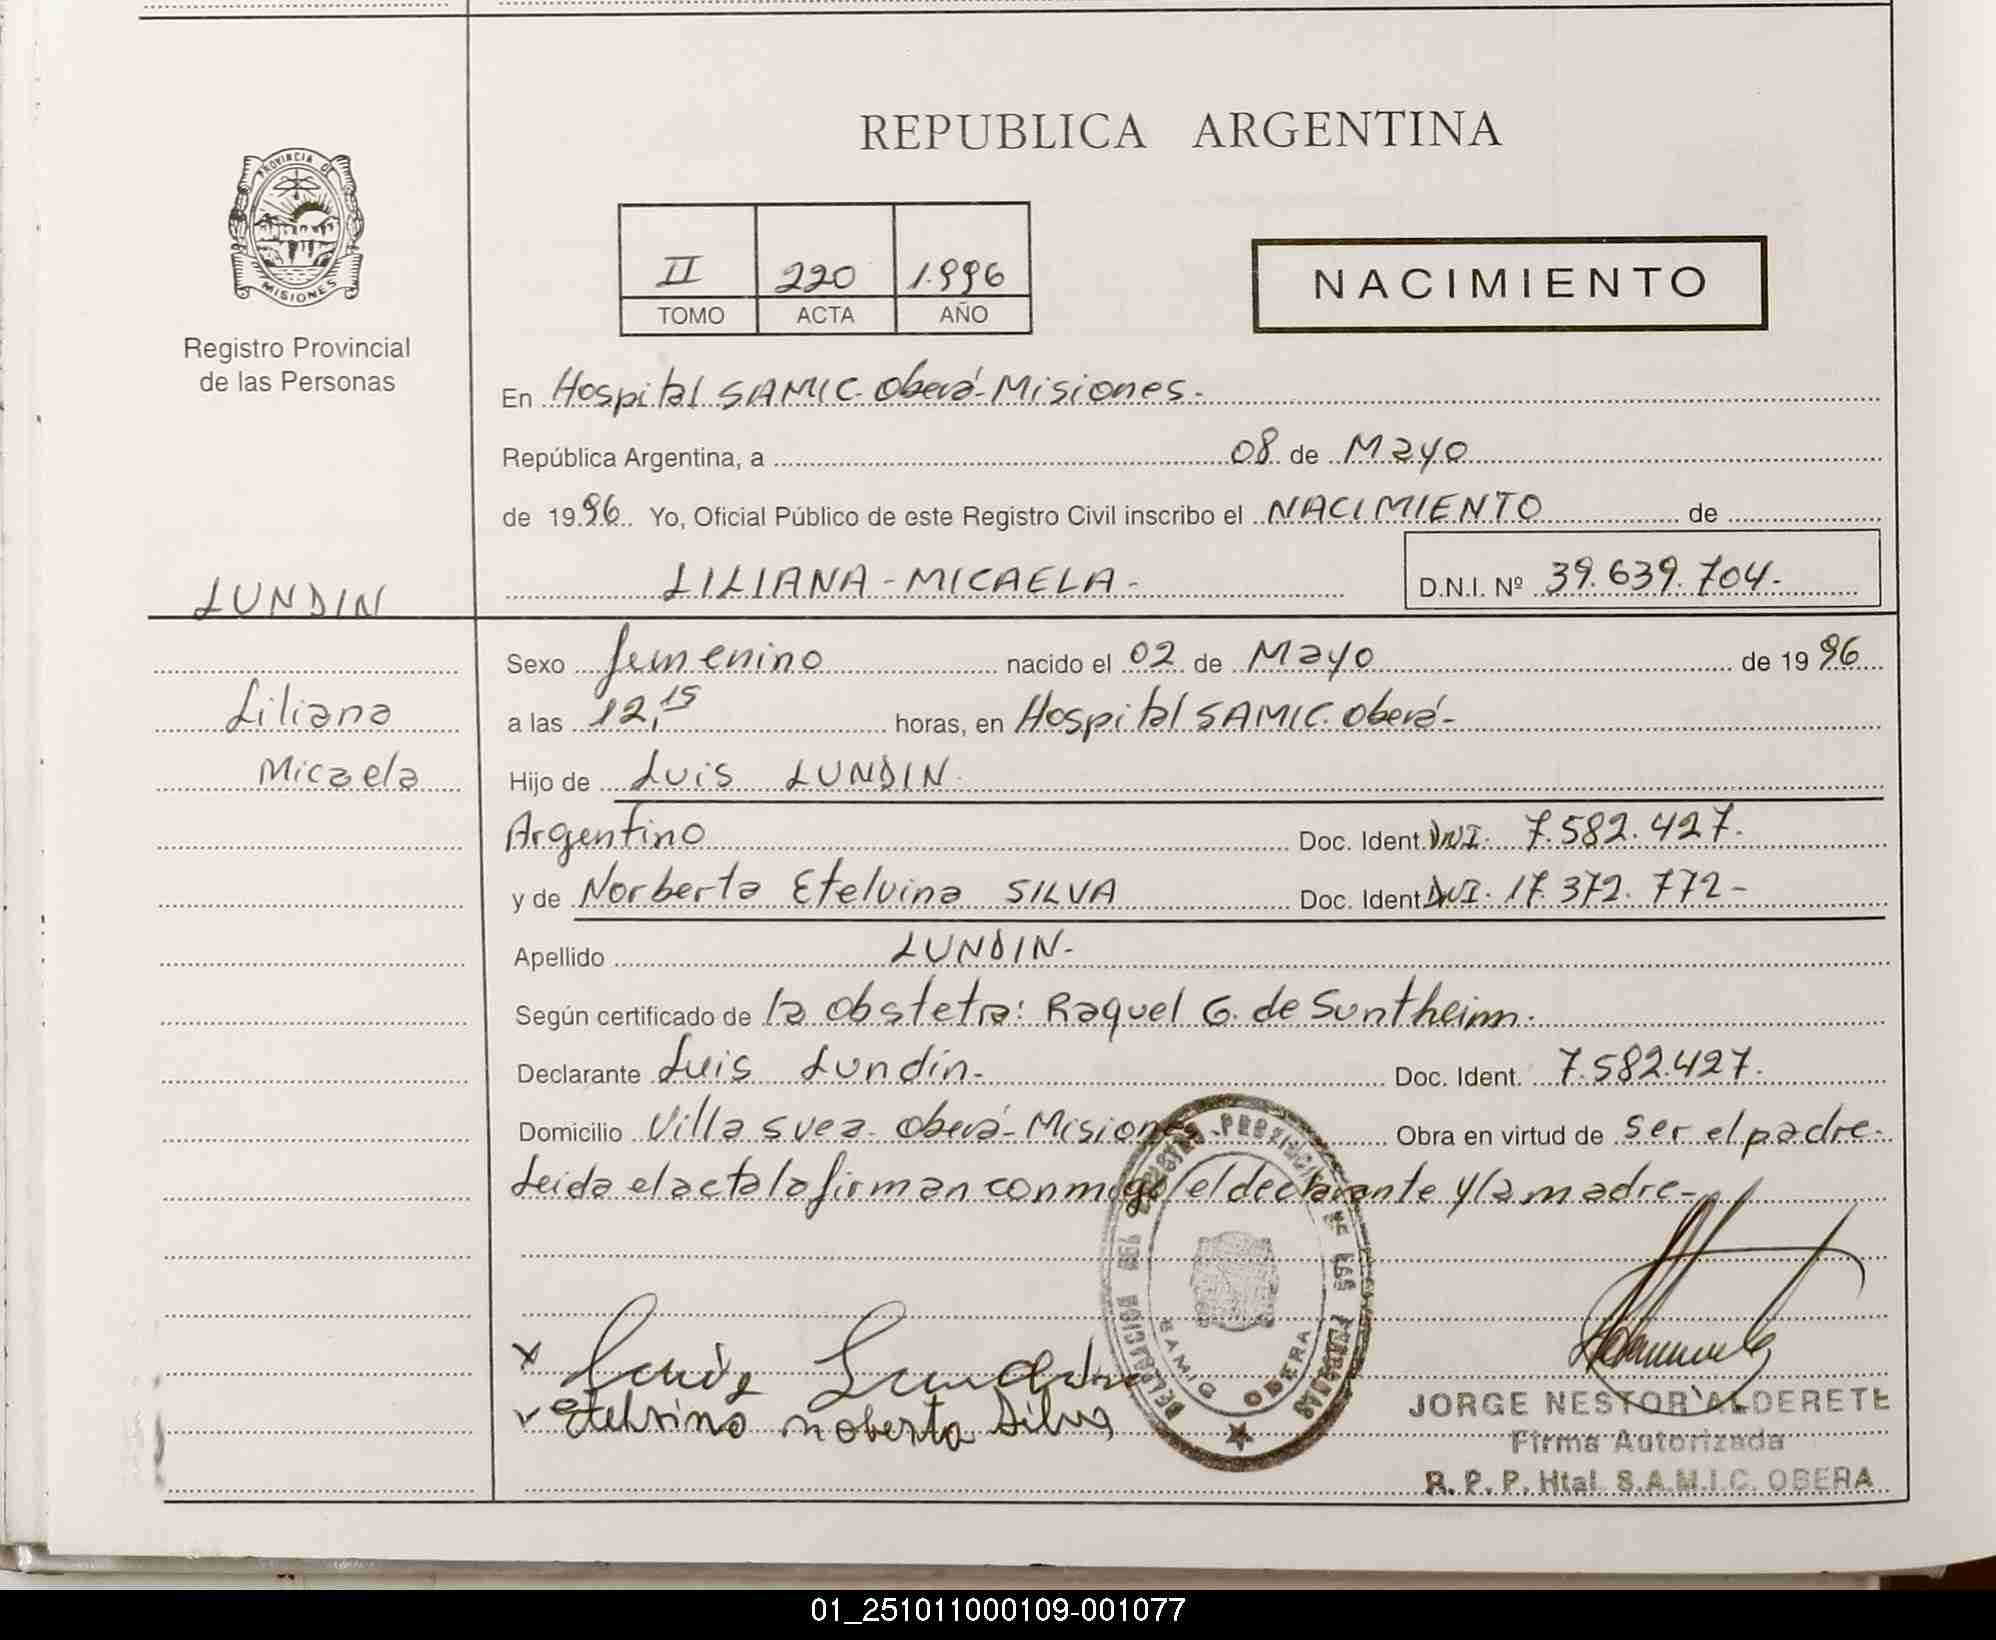 REPUBLICA ARGENTINA
PROVINCIA DE
MISIONES
Registro Provincial
de las Personas
II 220 1.996
TOMO ACTA AÑO
NACIMIENTO
En Hospital SAMIC. Oberá-Misiones-
República Argentina, a 08 de Mayo
de 1996. Yo, Oficial Público de este Registro Civil inscribo el NACIMIENTO de
LILIANA-MICAELA- D.N.I. Nº 39.639.704-
LUNDIN
Liliana
Micaela
Sexo femenino nacido el 02 de Mayo de 1996
a las 12,15 horas, en Hospital SAMIC. Oberá-
Hijo de Luis LUNDIN.
Argentino Doc. Ident. DNI. 7.582.427.
y de Norberta Etelvina SILVA Doc. Ident. DNI. 17.372.772-
Apellido LUNDIN-
Según certificado de la obstetra: Raquel G. de Suntheim.
Declarante Luis Lundin- Doc. Ident. 7.582.427.
Domicilio Villa svea. Oberá-Misiones Obra en virtud de ser el padre-
Leida el acta la firman conmigo/el declarante y la madre-
PROVINCIAL DE LAS PERSONAS
DELEGACION
SAMIC OBERA
x Luis Lundin
Etelvina Noberta Silva
JORGE NESTOR ALDERETE
Firma Autorizada
R. P. P. Htal. S.A.M.I.C. OBERA
01_251011000109-001077